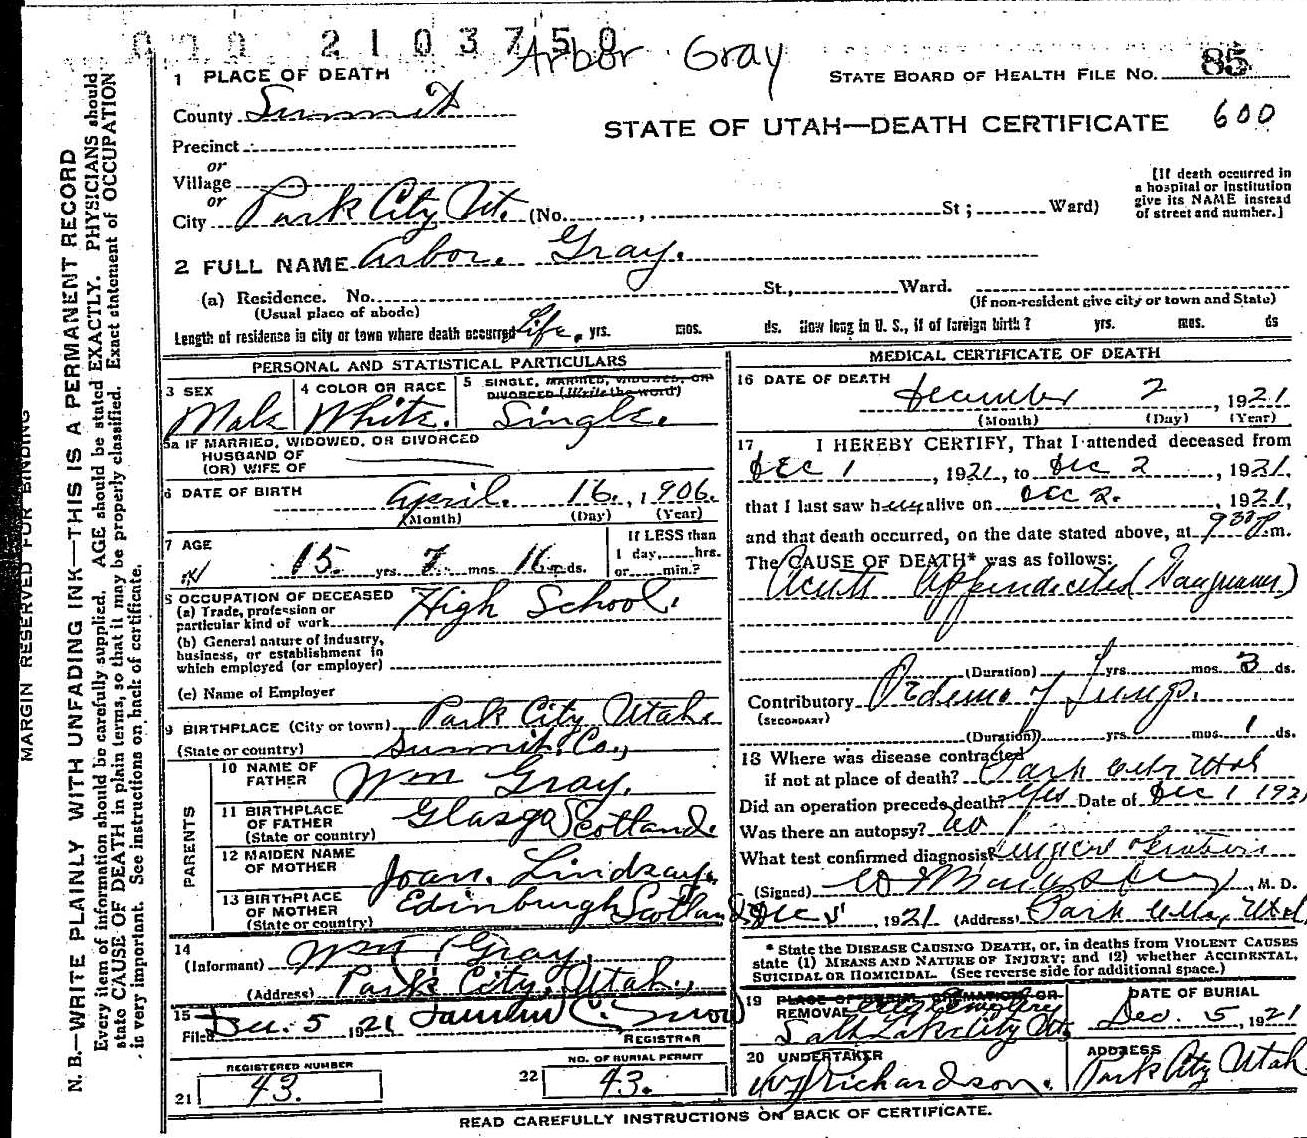 2103750
Arbor Gray
STATE BOARD OF HEALTH FILE NO. 85
600
STATE OF UTAH—DEATH CERTIFICATE
1 PLACE OF DEATH
County Summit
Precinct
or
Village
or
City Park City Ut. (No. , St ; Ward)
[If death occurred in
a hospital or institution
give its NAME instead
of street and number.]
2 FULL NAME Arbor. Gray.
(a) Residence. No. St., Ward.
(Usual place of abode) (If non-resident give city or town and State)
Length of residence in city or town where death occurred Life. yrs. mos. ds. How long in U. S., if of foreign birth? yrs. mos. ds
PERSONAL AND STATISTICAL PARTICULARS
3 SEX Male
4 COLOR OR RACE White.
5 SINGLE, MARRIED, WIDOWED, OR
DIVORCED (Write the word)
Single.
5a IF MARRIED, WIDOWED, OR DIVORCED
HUSBAND OF
(OR) WIFE OF
6 DATE OF BIRTH April. 16., 1906.
(Month) (Day) (Year)
7 AGE 15. yrs 7. mos 16 ds.
If LESS than
1 day, hrs.
or min.?
8 OCCUPATION OF DECEASED
(a) Trade, profession or
particular kind of work High School.
(b) General nature of industry,
business, or establishment in
which employed (or employer)
(c) Name of Employer
9 BIRTHPLACE (City or town) Park City Utah
(State or country) Summit. Co.,
PARENTS
10 NAME OF
FATHER Wm Gray.
11 BIRTHPLACE
OF FATHER
(State or country) Glasgo Scotland
12 MAIDEN NAME
OF MOTHER Joan. Lindsay.
13 BIRTHPLACE
OF MOTHER
(State or country) Edinburgh Scotland
14
(Informant) Wm Gray
(Address) Park City, Utah.,
15
Filed Dec. 5 1921 C. Snow
REGISTRAR
REGISTERED NUMBER
21 43.
NO. OF BURIAL PERMIT
22 43.
MEDICAL CERTIFICATE OF DEATH
16 DATE OF DEATH
December 2, 1921
(Month) (Day) (Year)
17 I HEREBY CERTIFY, That I attended deceased from
Dec 1, 1921, to Dec 2, 1921.
that I last saw him alive on Dec 2., 1921,
and that death occurred, on the date stated above, at 9 30 P.m.
The CAUSE OF DEATH* was as follows:
Acute Appendicitis (Gangrenous)
(Duration) yrs. mos. 3 ds.
Contributory Oedema of Lungs.
(SECONDARY)
(Duration) yrs. mos. 1 ds.
18 Where was disease contracted
if not at place of death? Park City Utah
Did an operation precede death? Yes Date of Dec 1 1921
Was there an autopsy? no
What test confirmed diagnosis? Surgical operation
(Signed) , M. D.
Dec 5, 1921 (Address) Park City, Utah
* State the DISEASE CAUSING DEATH, or, in deaths from VIOLENT CAUSES
state (1) MEANS AND NATURE OF INJURY; and (2) whether ACCIDENTAL,
SUICIDAL OR HOMICIDAL. (See reverse side for additional space.)
19 PLACE OF BURIAL, CREMATION OR
REMOVAL City Cemetery
Salt Lake City Ut.
DATE OF BURIAL
Dec. 5, 1921
20 UNDERTAKER
Richardson.
ADDRESS
Park City Utah
READ CAREFULLY INSTRUCTIONS ON BACK OF CERTIFICATE.
MARGIN RESERVED FOR BINDING
N. B.—WRITE PLAINLY WITH UNFADING INK—THIS IS A PERMANENT RECORD
Every item of information should be carefully supplied. AGE should be stated EXACTLY. PHYSICIANS should
state CAUSE OF DEATH in plain terms, so that it may be properly classified. Exact statement of OCCUPATION
is very important. See instructions on back of certificate.